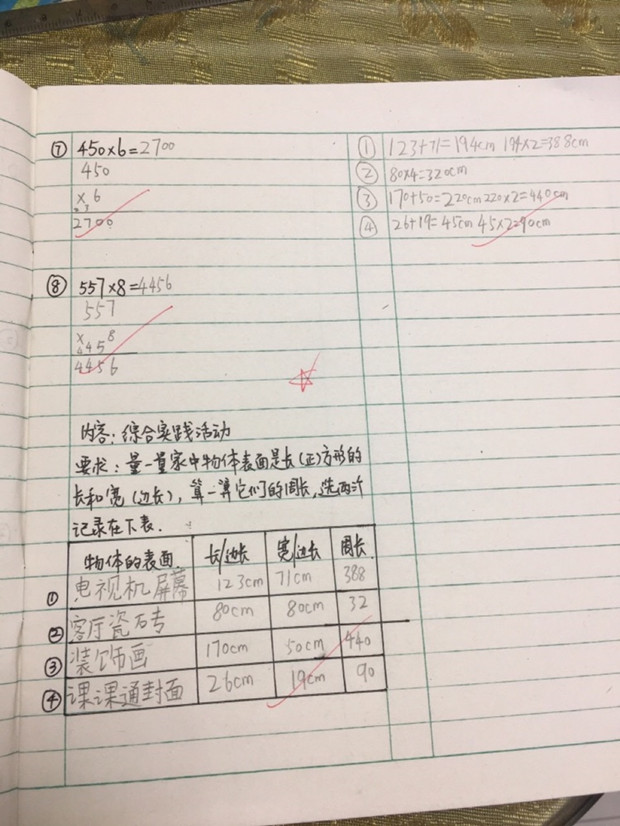 ⑦ 450×6=2700
450
× 6
2700
⑧ 557×8=4456
557
× 8
4456
① 123+71=194cm 194×2=388cm
② 80×4=320cm
③ 170+50=220cm 220×2=440cm
④ 26+19=45cm 45×2=90cm
内容：综合实践活动
要求：量一量家中物体表面是长（正）方形的
长和宽（边长），算一算它们的周长，选两个
记录在下表．
物体的表面 长/边长 宽/边长 周长
① 电视机屏幕 123cm 71cm 388
② 客厅瓷砖 80cm 80cm 32
③ 装饰画 170cm 50cm 440
④ 课课通封面 26cm 19cm 90